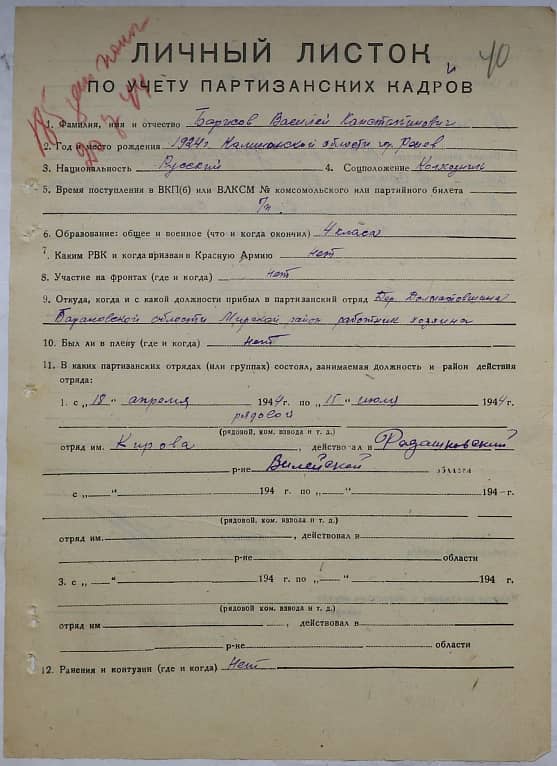 40
ЛИЧНЫЙ ЛИСТОК
ПО УЧЕТУ ПАРТИЗАНСКИХ КАДРОВ
1. Фамилия, имя и отчество Борисов Василий Константинович
2. Год и место рождения 1924 г. Калининской области гор. Ржев
3. Национальность Русский 4. Соцположение Колхозник
5. Время поступления в ВКП(б) или ВЛКСМ № комсомольского или партийного билета
б/п.
6. Образование: общее и военное (что и когда окончил) 4 класса
7. Каким РВК и когда призван в Красную Армию нет
8. Участие на фронтах (где и когда) нет
9. Откуда, когда и с какой должности прибыл в партизанский отряд Дер.
Барановской области Мирский район работник хозяина
10. Был ли в плену (где и когда) нет
11. В каких партизанских отрядах (или группах) состоял, занимаемая должность и район действия
отряда:
1. с „18" апреля 1944 г. по „15" июля 1944 г.
рядовой
(рядовой, ком. взвода и т. д.)
отряд им. Кирова, действовал в Радашковский
р-не Вилейской области
с „ " 194 г. по „ " 194 г.
(рядовой, ком. взвода и т. д.)
отряд им. , действовал в
р-не области
3. с „ " 194 г. по „ " 194 г.
(рядовой, ком. взвода и т. д.)
отряд им , действовал в
р-не области
12. Ранения и контузии (где и когда) Нет